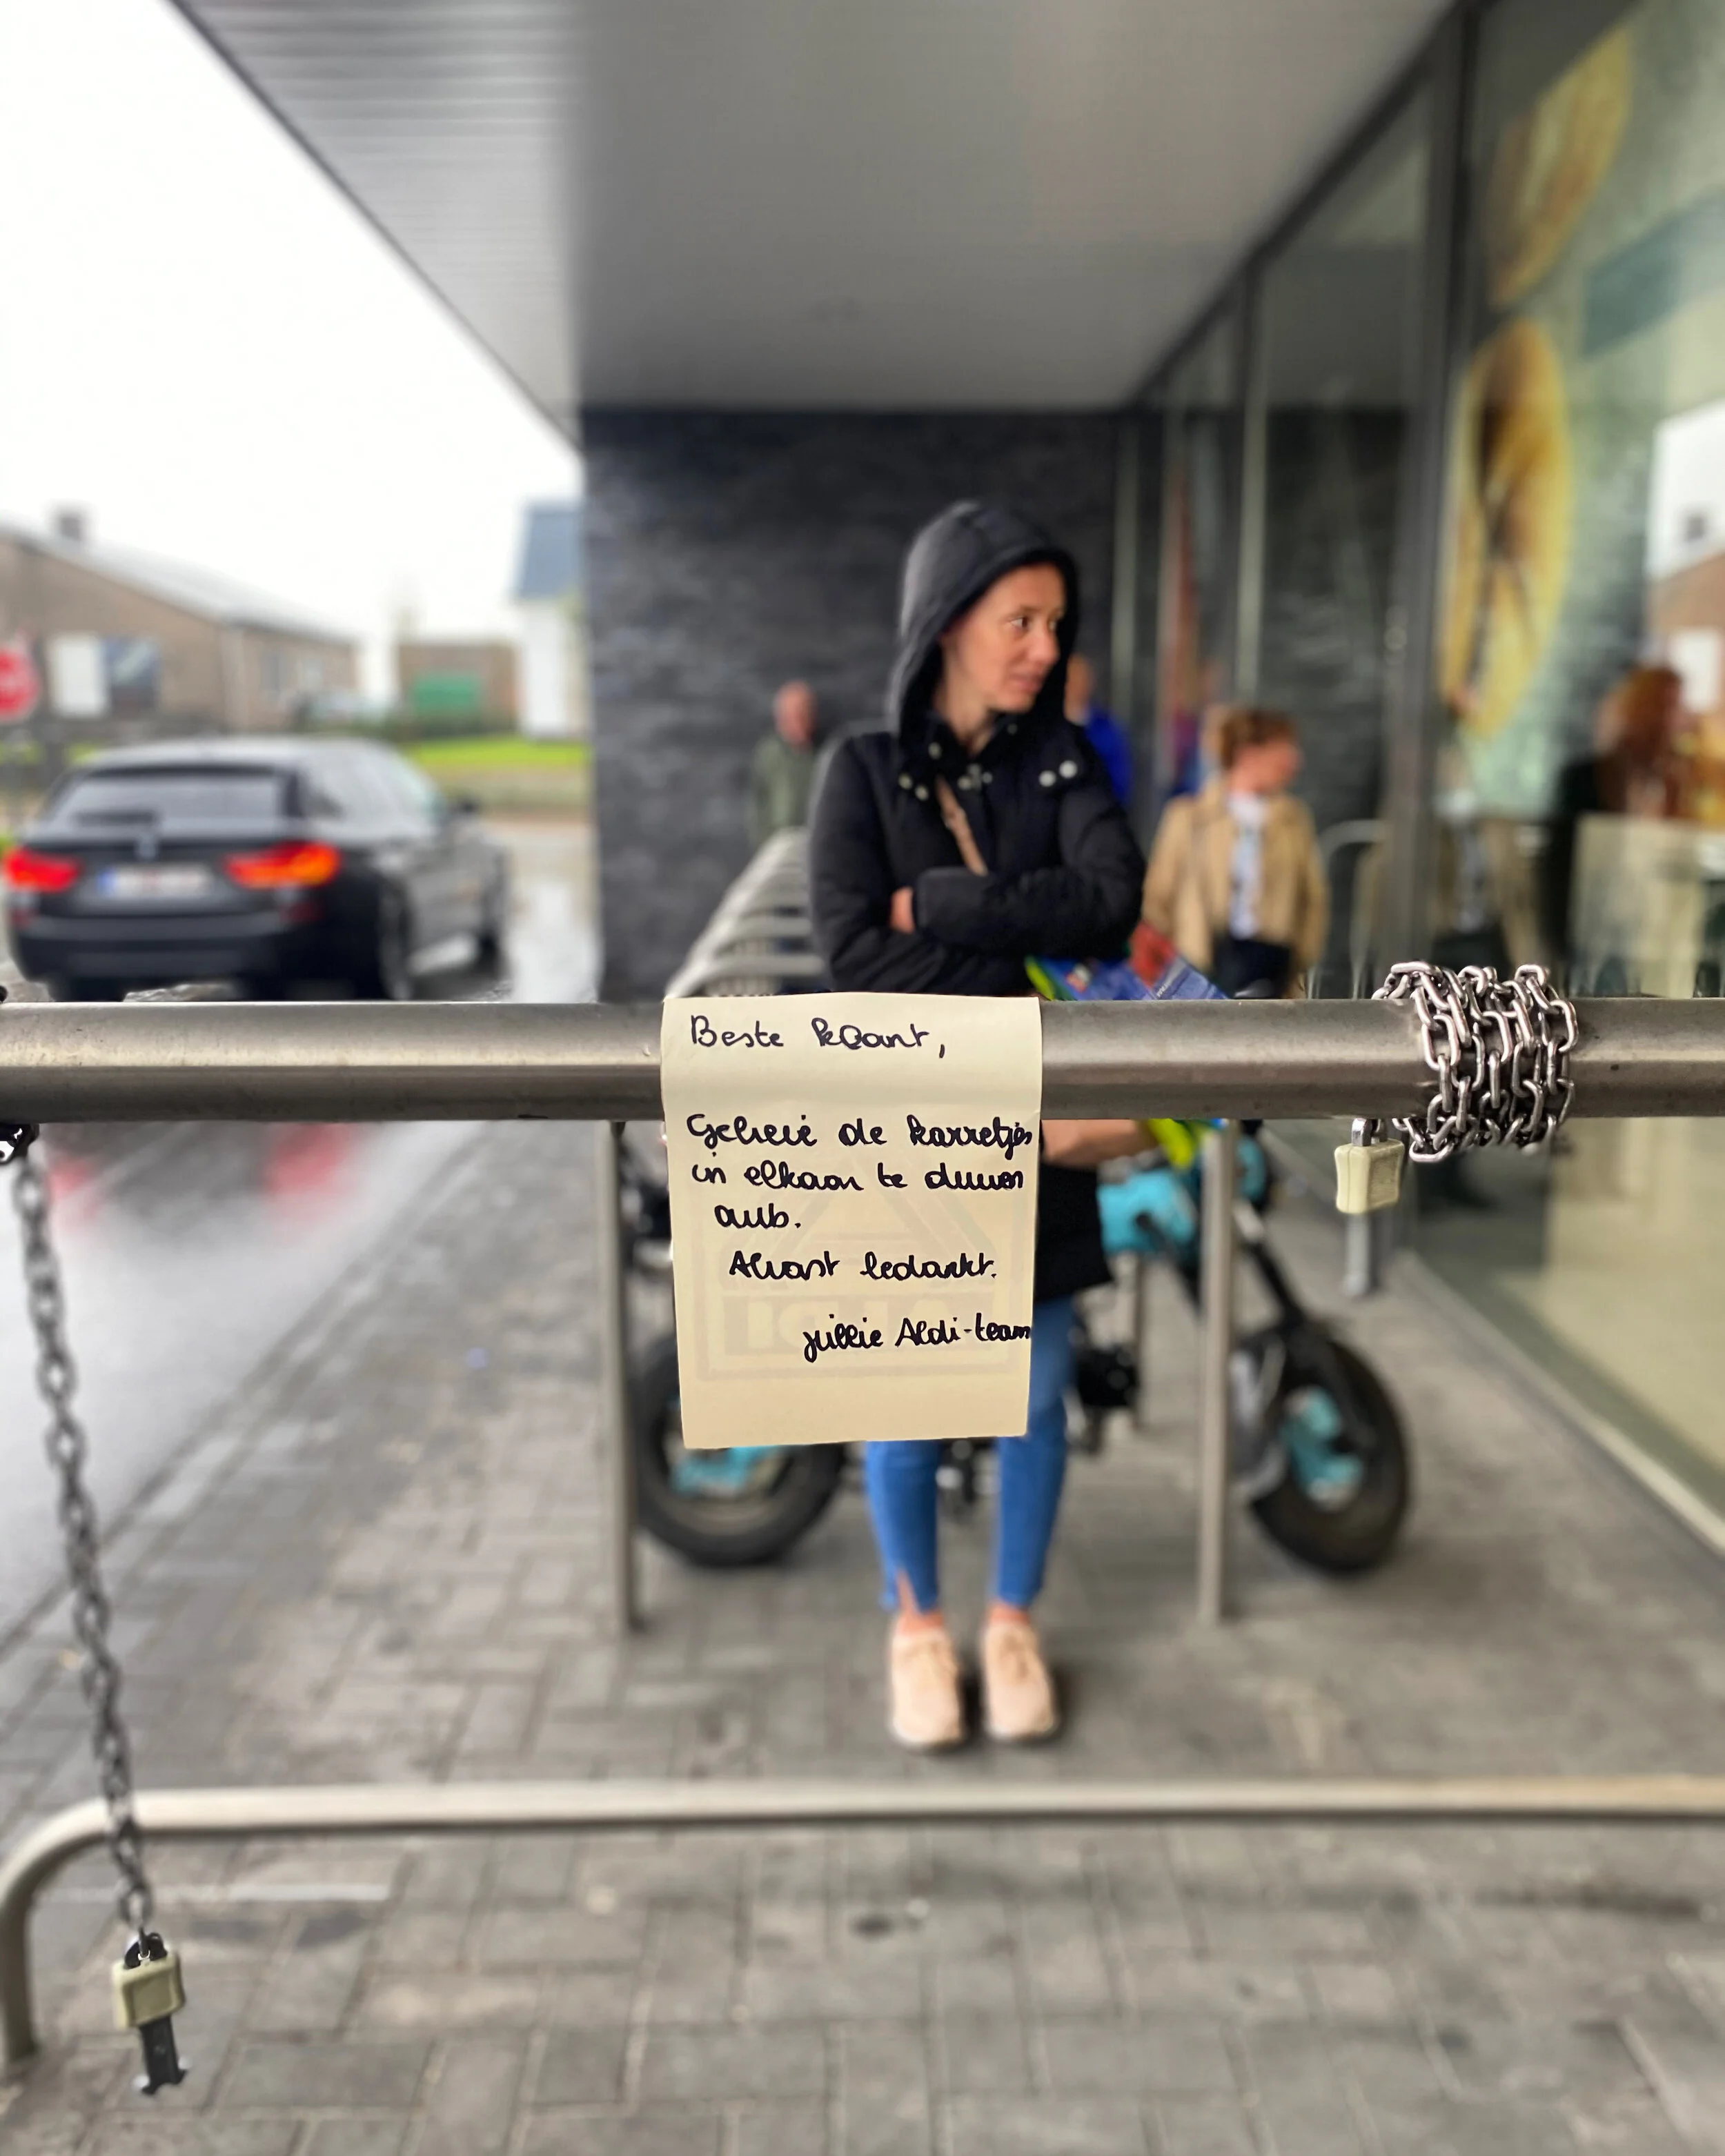 Beste klant,
Gelieve de karretjes
in elkaar te duwen
aub.
Alvast bedankt.
jullie Aldi-team
ALDI